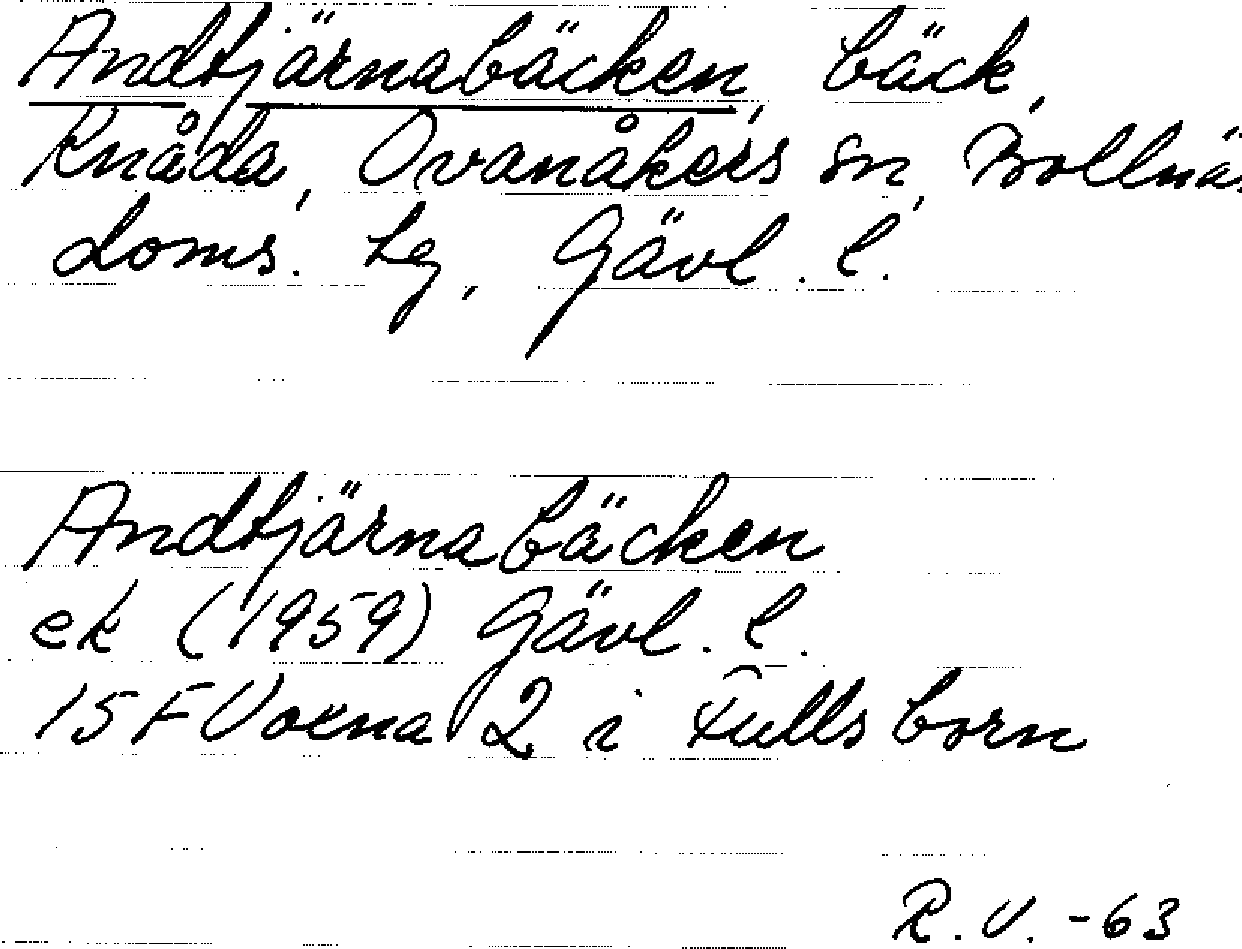 Andtjärnabäcken, bäck,
Knåda, Ovanåkers sn, Bollnäs
doms. lg, Gävl. l.
Andtjärnabäcken
ek (1959) Gävl. l.
15F Voxna 2 i Fullsborn
R.V. -63